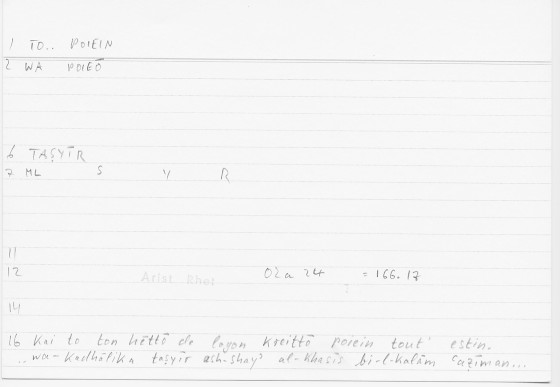 1 TO.. POIEIN
2 WA POIEŌ
6 TAṢYĪR
7 ML Ṣ Y R
11
12 Arist Rhet 02a 24 = 166.17
14
16 Kai to ton hēttō de logon kreittō poiein tout' estin.
.. wa-kadhālika taṣyīr ash-shayʾ al-khasīs bi-l-kalām ʿaẓīman...